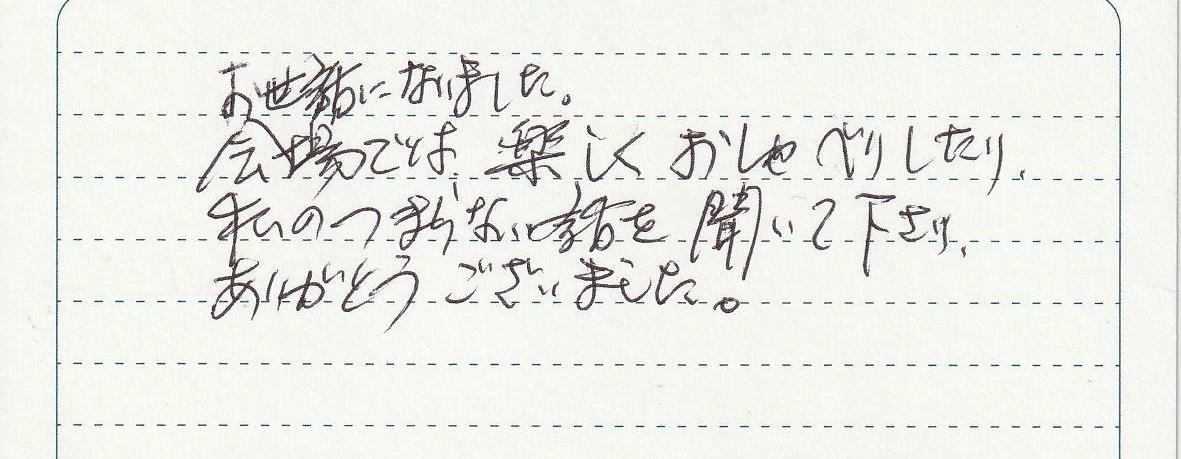 お世話になりました。
会場では、楽しくおしゃべりしたり、
私のつまらない話を聞いて下さり、
ありがとうございました。